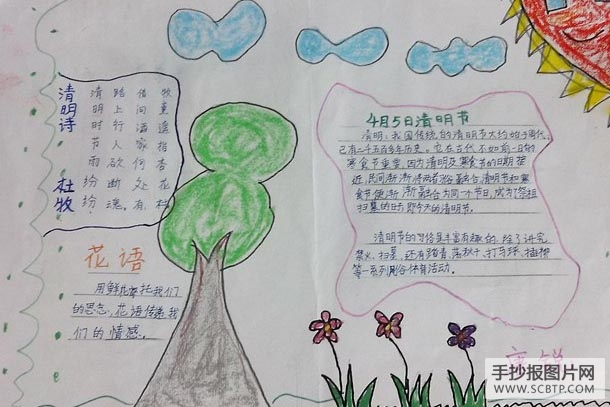 清明诗 杜牧
清明时节雨纷纷
路上行人欲断魂。
借问酒家何处有
牧童遥指杏花村
花语
用鲜花寄托我们
的思念,花语传承我
们的情感。
4月5日清明节
清明:我国传统的清明节大约始于周代,
已有二千五百多年历史。它在古代不如前一日的
寒食节重要,因为清明及寒食节的日期接
近,民间渐渐将两者融合,清明节和寒
食节便渐渐融合为同一个节日,成为祭祖
扫墓的日子,即今天的清明节。
清明节的习俗是丰富有趣的,除了讲究
禁火、扫墓,还有踏青、荡秋千、打马球、插柳
等一系列风俗体育活动。
手抄报图片网
WWW.SCBTP.COM